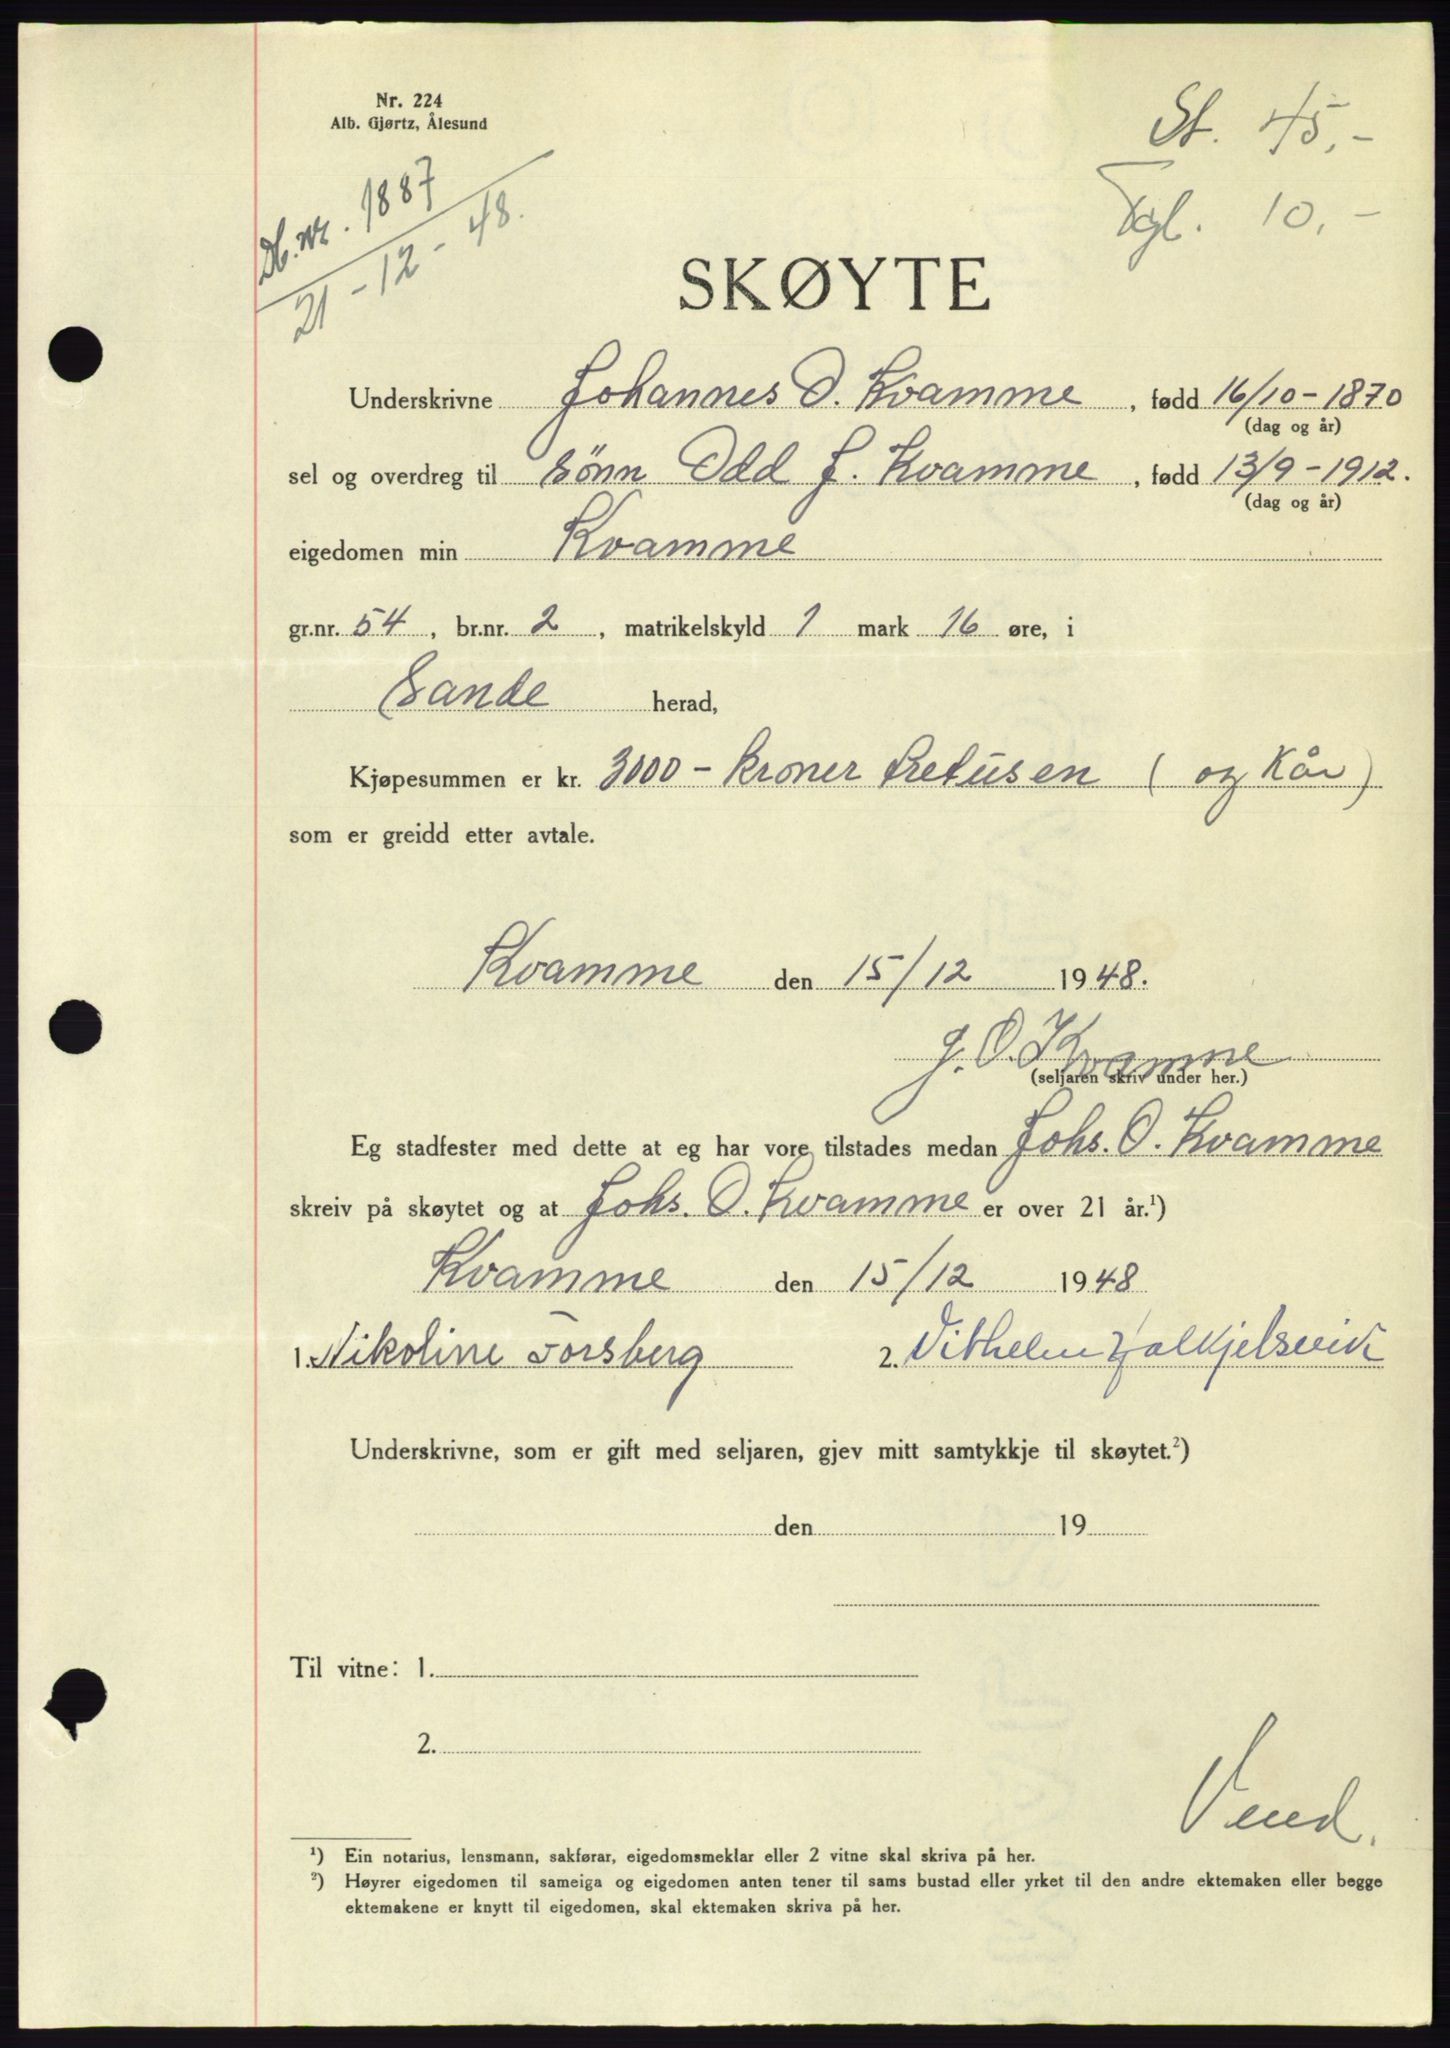 Nr. 224
Alb. Gjørtz, Ålesund
St. 45,-
Tgl. 10,-
Db. nr. 1887
21-12-48.
SKØYTE
Underskrivne Johannes O. Kvamme, fødd 16/10-1870
(dag og år)
sel og overdreg til sønn Odd J. Kvamme, fødd 13/9-1912.
(dag og år)
eigedomen min Kvamme
gr.nr. 54, br.nr. 2, matrikelskyld 1 mark 16 øre, i
Sande herad,
Kjøpesummen er kr. 3000 - kroner tretusen (og Kår)
som er greidd etter avtale.
Kvamme den 15/12 1948.
J. O. Kvamme
(seljaren skriv under her.)
Eg stadfester med dette at eg har vore tilstades medan Johs. O. Kvamme
skreiv på skøytet og at Johs. O. Kvamme er over 21 år.¹)
Kvamme den 15/12 1948
1. Nikoline Forsberg 2. Vilhelm
Underskrivne, som er gift med seljaren, gjev mitt samtykkje til skøytet.²)
den 19
Til vitne: 1.
2.
Vend.
¹) Ein notarius, lensmann, sakførar, eigedomsmeklar eller 2 vitne skal skriva på her.
²) Høyrer eigedomen til sameiga og eigedomen anten tener til sams bustad eller yrket til den andre ektemaken eller begge
ektemakene er knytt til eigedomen, skal ektemaken skriva på her.